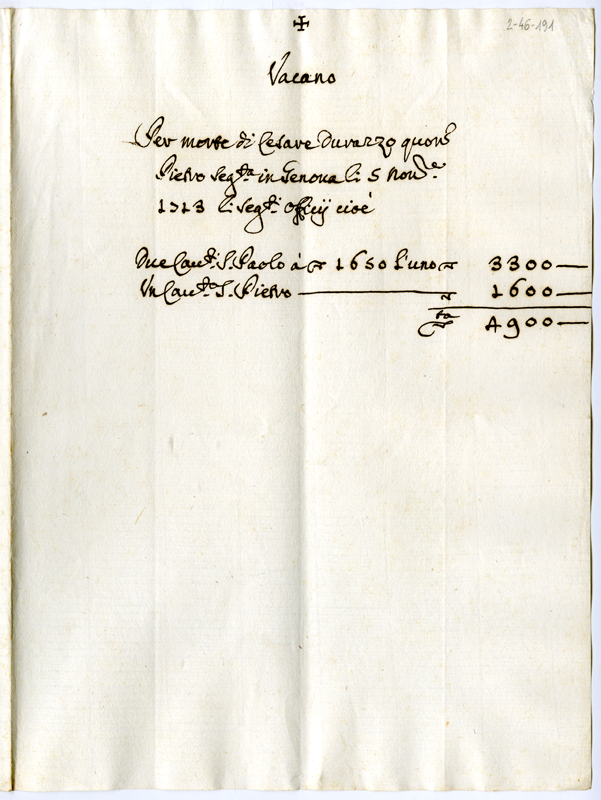 ✠
2-46-191
Vacano
Per morte di Cesare Durazzo quond.
Pietro seg.ta in Genova li 5 Nov.e
1713 li seg.ti officij cioè
Due Cau.ti S. Paolo à 1650 l'uno 3300 —
Un Cau.to S. Pietro — 1600 —
4900 —